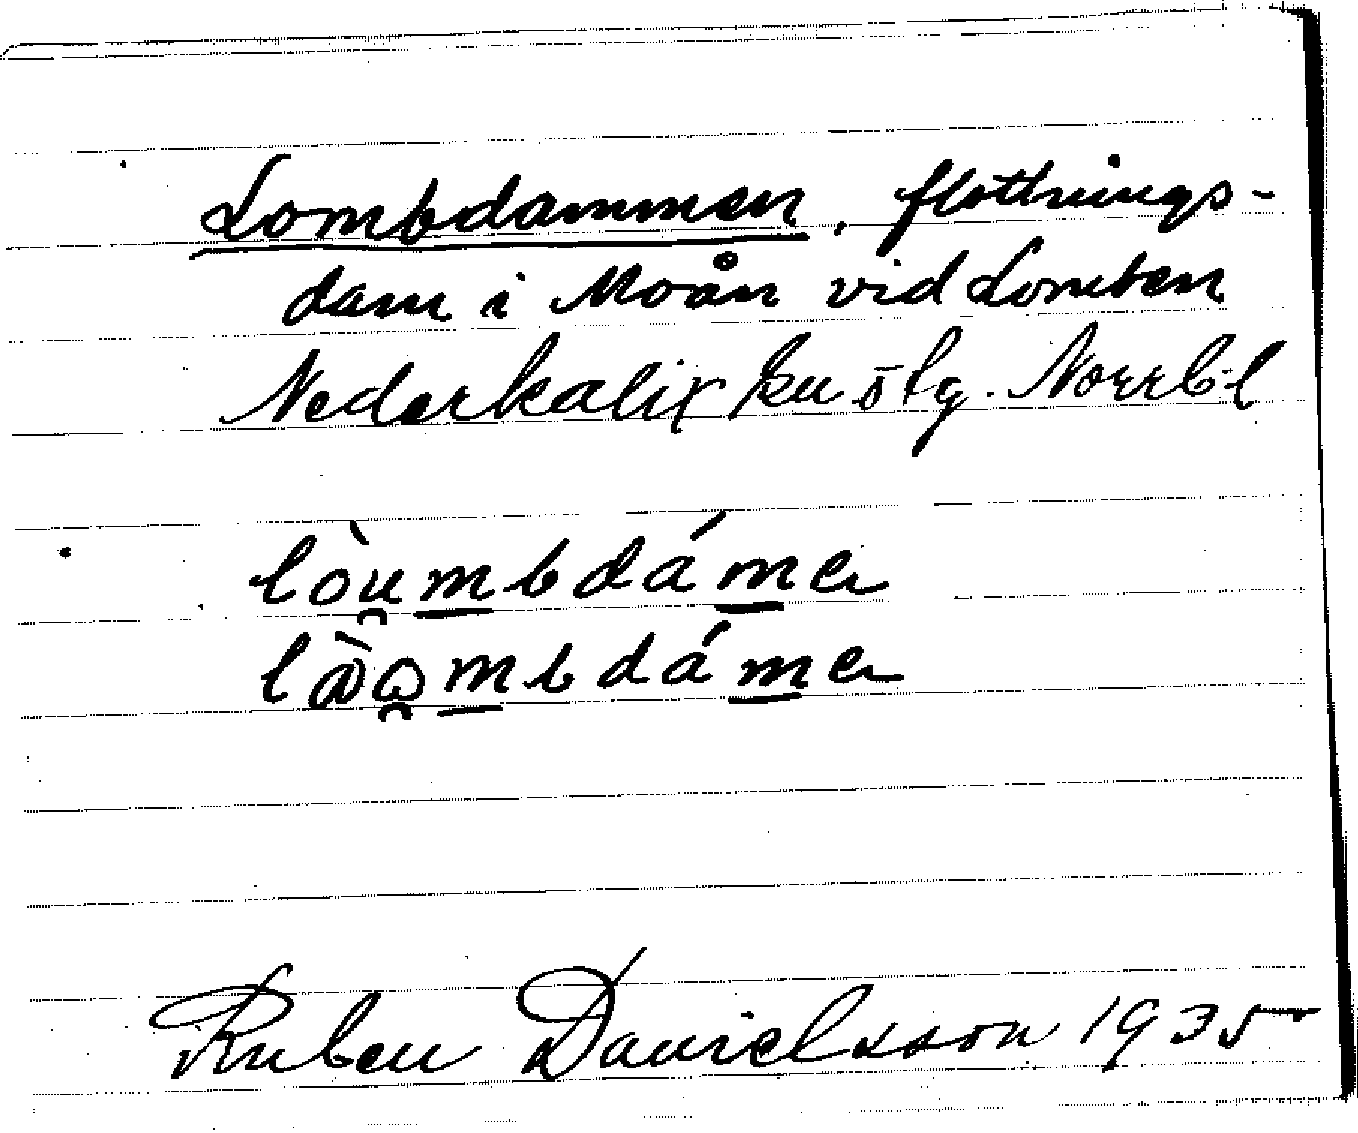 Lombdammen, flottnings-
dam i Moån vid Lomben
Nederkalix sn ö fg. Norrb. l
lòu̯m̱bdám̱en
Ruben Danielsson 1935